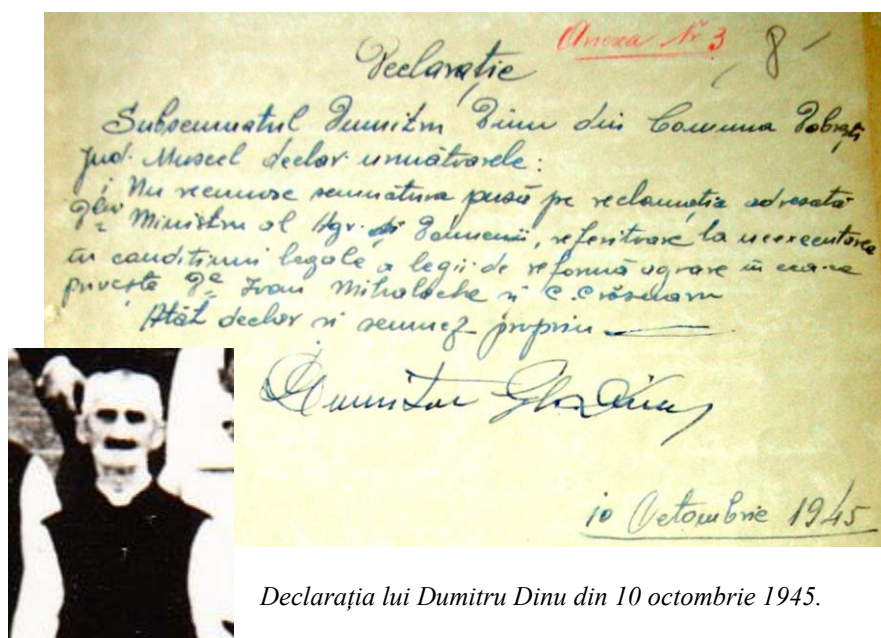 Anexa Nr 3
8
Declarație
Subsemnatul Dumitru Dinu din Comuna Dobrești
jud. Muscel declar următoarele:
Nu recunosc semnătura pusă pe reclamația adresată
Dlui Ministru al Agr. și Domenii, referitoare la neexecutarea
în condițiuni legale a legii de reformă agrare în ceea ce
privește Dl Ioan Mihalache și C. Crăsnaru
Atât declar și semnez propriu
Dumitru Gh. Dinu
10 Octombrie 1945
Declarația lui Dumitru Dinu din 10 octombrie 1945.